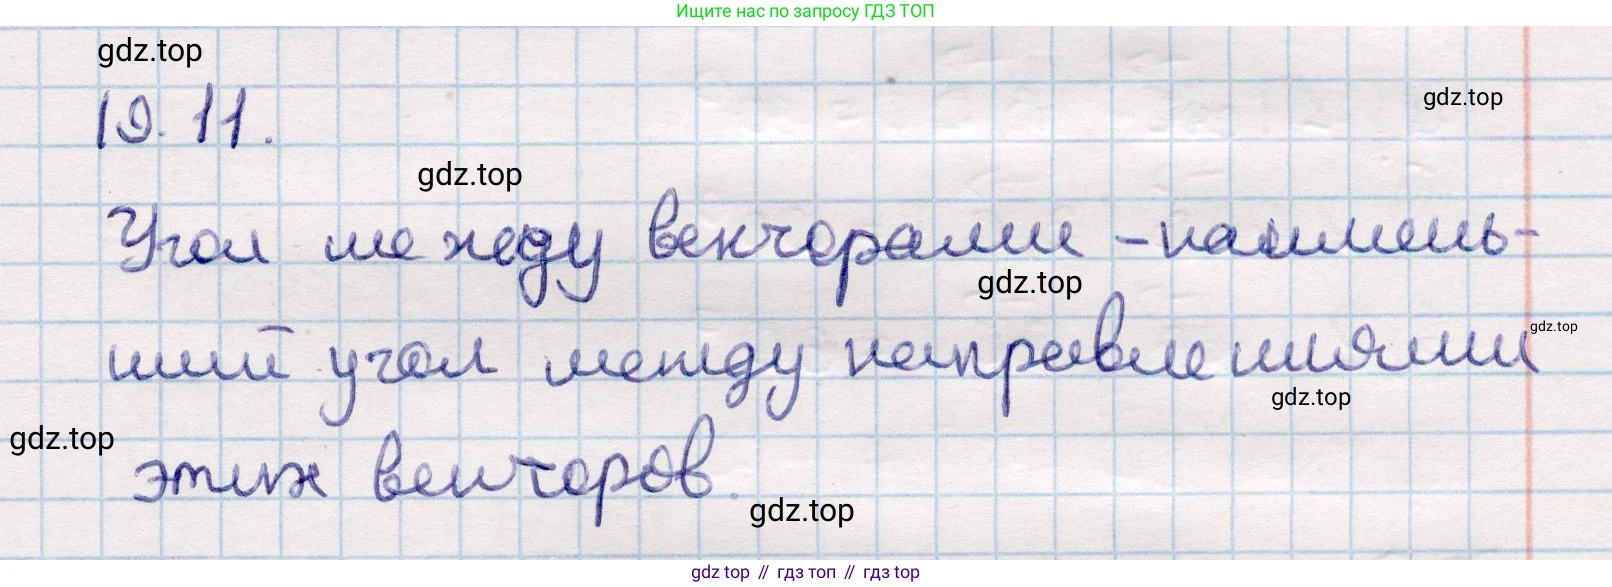 Ищите нас по запросу ГДЗ ТОП
gdz.top
gdz.top
19.11.
gdz.top
Угол между векторами – наимень-
gdz.top
ший угол между направлениями
gdz.top
gdz.top
gdz.top
этих векторов.
gdz.top
gdz top // гдз топ // гдз top